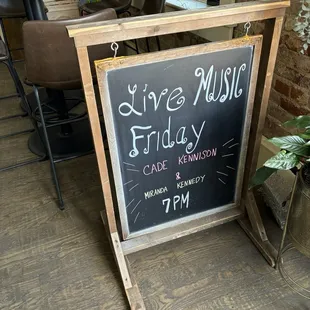 Live MUSIC
Friday
CADE KENNISON
&
MIRANDA KENNEDY
7PM